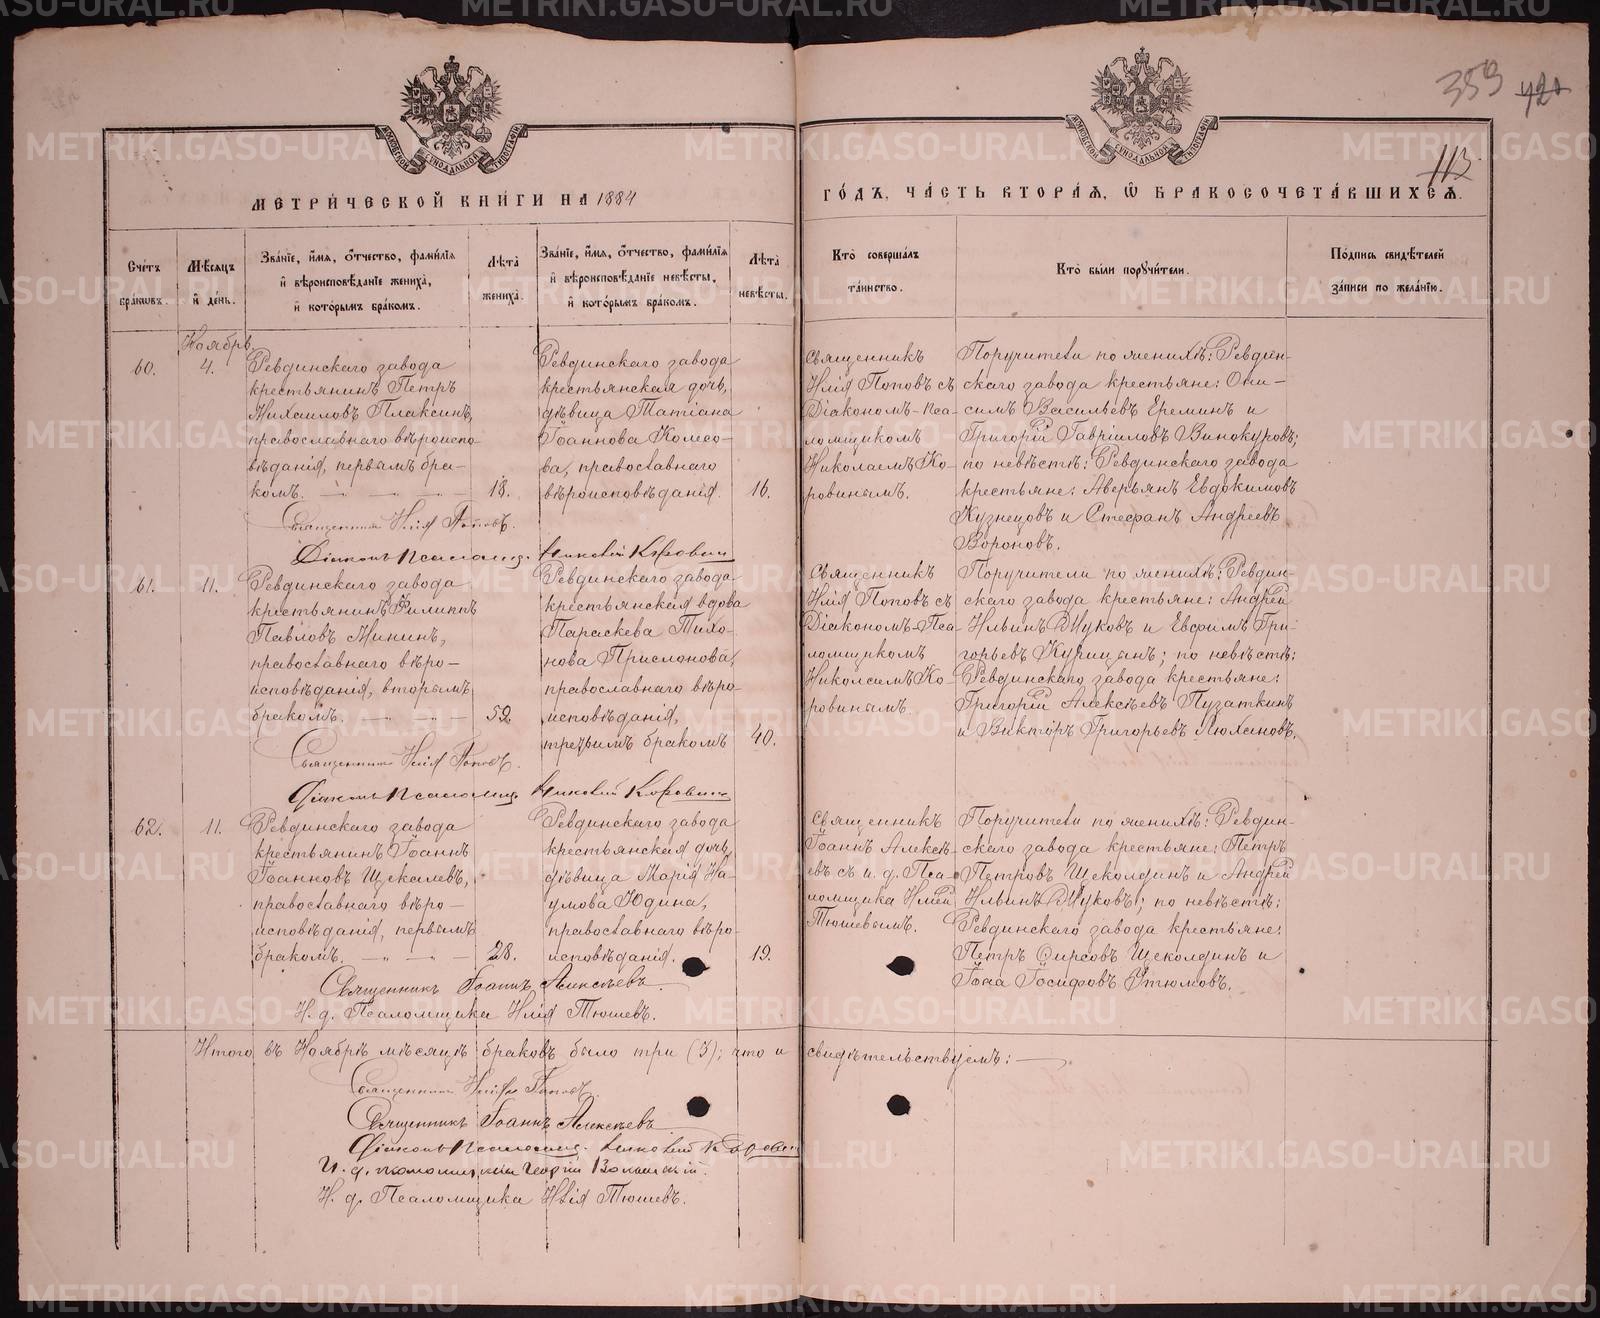 359 420
113
МОСКОВСКОЙ СѴНОДАЛЬНОЙ ТИПОГРАФІИ
МОСКОВСКОЙ СѴНОДАЛЬНОЙ ТИПОГРАФІИ
МЕТРИ́ЧЕСКОЙ КНИ́ГИ НА 1884
ГО́ДЪ, ЧА́СТЬ ВТОРА́Я, Ѿ БРАКОСОЧЕТА́ВШИХСЯ.
Сче́тъ
бра́ковъ.
Мѣ́сяцъ
и де́нь.
Зва́нїе, и́мя, о́тчество, фами́лїя
и вѣроисповѣ́данїе жениха̀,
и кото́рымъ бра́комъ.
Лѣ́та
жениха̀.
Зва́нїе, и́мя, о́тчество, фами́лїя
и вѣроисповѣ́данїе невѣ́сты,
и кото́рымъ бра́комъ.
Лѣ́та
невѣ́сты.
Кто̀ соверша́лъ
та́инство.
Кто̀ бы́ли поручи́тели.
По́дпись свидѣ́телей
за́писи по жела́нїю.
Ноябрь
60.
4.
Ревдинскаго завода
крестьянинъ Петръ
Михаиловъ Плаксинъ,
православнаго вѣроиспо
вѣданія, первымъ бра-
комъ.
18.
Ревдинскаго завода
крестьянская дочь,
дѣвица Татіана
Іоаннова Колесо-
ва, православнаго
вѣроисповѣданія.
16.
Священникъ
Илія Поповъ съ
Діакономъ-Пса-
ломщикомъ
Николаемъ Ко-
ровинымъ.
Поручители по женихѣ: Ревдин-
скаго завода крестьяне: Они-
симъ Васильевъ Ереминъ и
Григорій Гавріиловъ Винокуровъ;
по невѣстѣ: Ревдинскаго завода
крестьяне: Аверьянъ Евдокимовъ
Кузнецовъ и Стефанъ Андреевъ
Вороновъ.
Священникъ Илія Поповъ.
Діаконъ Псаломщ. Николай Коровин
61.
11.
Ревдинскаго завода
крестьянинъ Филиппъ
Павловъ Мининъ,
православнаго вѣро-
исповѣданія, вторымъ
бракомъ.
52
Ревдинскаго завода
крестьянская вдова
Параскева Тихо-
нова Прислонова,
православнаго вѣро-
исповѣданія,
третьимъ бракомъ
40.
Священникъ
Илія Поповъ съ
Діакономъ-Пса-
ломщикомъ
Николаемъ Ко-
ровинымъ.
Поручители по женихѣ: Ревдин-
скаго завода крестьяне: Андрей
Ильинъ Жуковъ и Евфимъ Гри-
горьевъ Курицынъ; по невѣстѣ:
Ревдинскаго завода крестьяне:
Григорій Алексѣевъ Пузаткинъ
и Викторъ Григорьевъ Люхановъ.
Священникъ Илія Поповъ.
Діаконъ Псаломщ. Николай Коровин
62.
11.
Ревдинскаго завода
крестьянинъ Іоаннъ
Іоанновъ Щекалевъ,
православнаго вѣро-
исповѣданія, первымъ
бракомъ.
28.
Ревдинскаго завода
крестьянская дочь,
дѣвица Марія На-
умова Юдина,
православнаго вѣро-
исповѣданія.
19.
Священникъ
Іоаннъ Алексѣ-
евъ съ и. д. Пса-
ломщика Иліей
Тюшевымъ.
Поручители по женихѣ: Ревдин-
скаго завода крестьяне: Петръ
Петровъ Щеколдинъ и Андрей
Ильинъ Жуковъ; по невѣстѣ:
Ревдинскаго завода крестьяне:
Петръ Фирсовъ Щеколдинъ и
Іона Іосифовъ Утюмовъ.
Священникъ Іоаннъ Алексѣевъ.
И. д. Псаломщика Илія Тюшевъ.
Итого въ Ноябрѣ мѣсяцѣ браковъ было три (3); что и свидѣтельствуемъ:
Священникъ Илія Поповъ.
Священникъ Іоаннъ Алексѣевъ
Діаконъ Псаломщ. Николай Коровин
И. д. псаломщика Георгій
И. д. Псаломщика Илія Тюшевъ.
METRIKI.GASO-URAL.RU